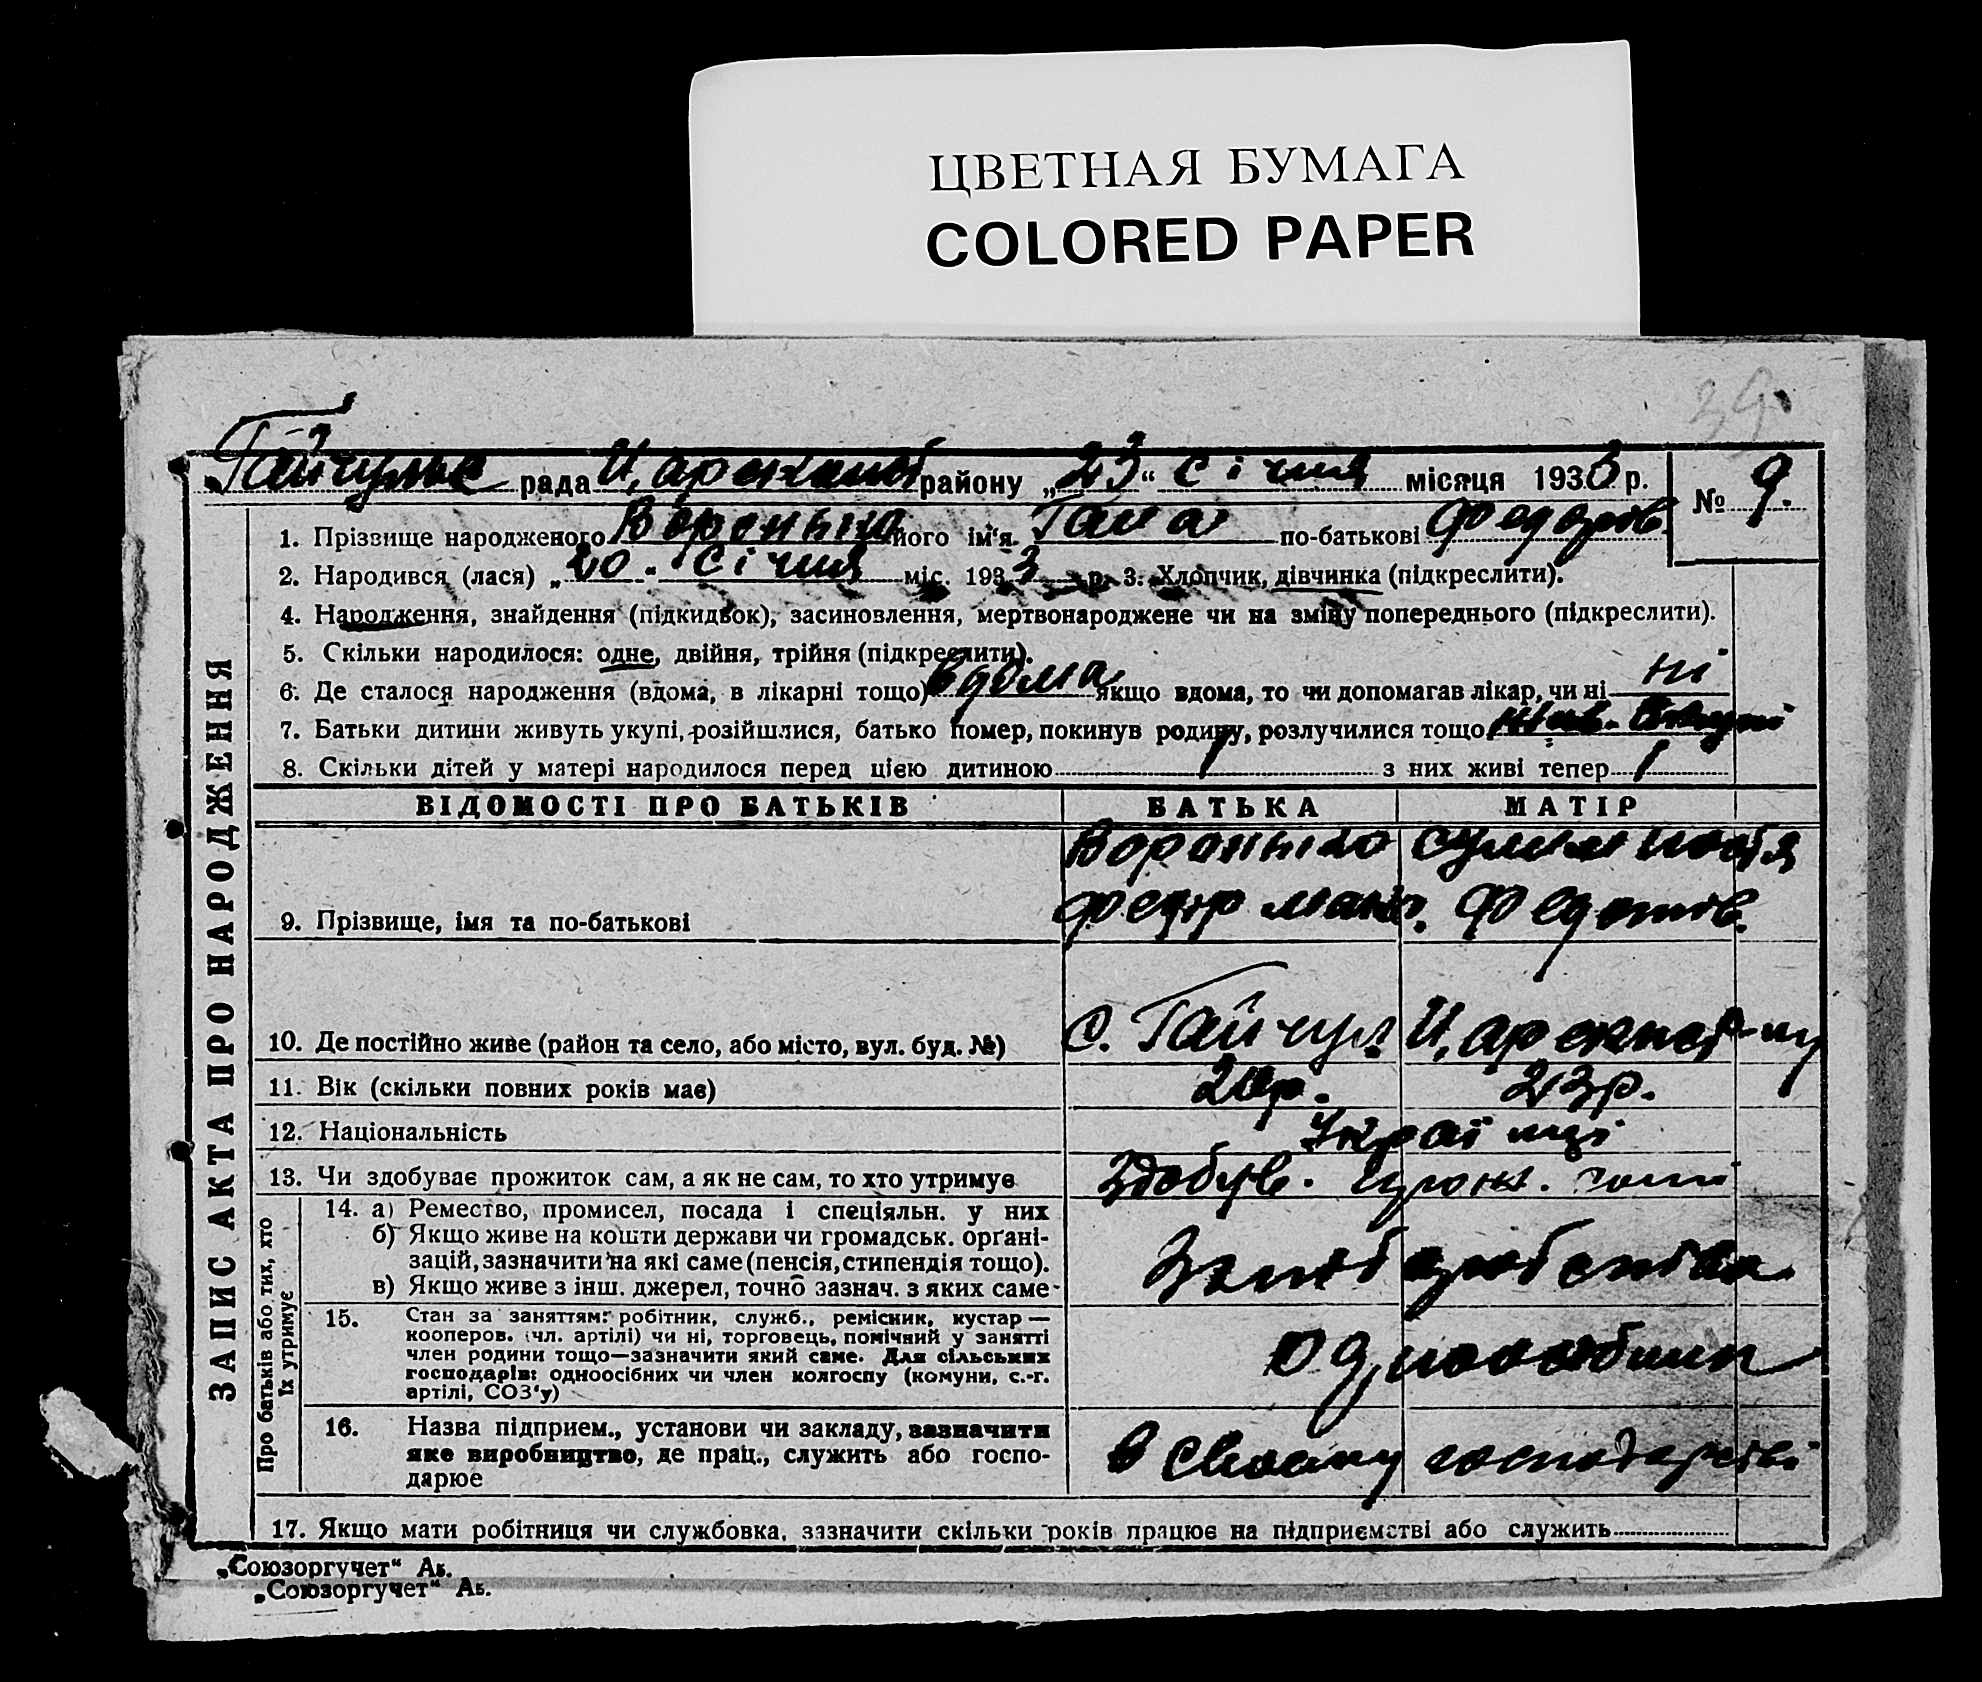 ЦВЕТНАЯ БУМАГА
COLORED PAPER
39
рада району „23“ січня місяця 1933 р. № 9.
ЗАПИС АКТА ПРО НАРОДЖЕННЯ
1. Прізвище народженого його ім'я по-батькові Федорів
2. Народився (лася) „20“ січня міс. 1933 р. 3. Хлопчик, дівчинка (підкреслити).
4. Народження, знайдення (підкидьок), засиновлення, мертвонароджене чи на зміну попереднього (підкреслити).
5. Скільки народилося: одне, двійня, трійня (підкреслити).
6. Де сталося народження (вдома, в лікарні тощо) вдома якщо вдома, то чи допомагав лікар, чи ні ні
7. Батьки дитини живуть укупі, розійшлися, батько помер, покинув родину, розлучилися тощо жив. вкупі
8. Скільки дітей у матері народилося перед цією дитиною 1 з них живі тепер 1
ВІДОМОСТІ ПРО БАТЬКІВ БАТЬКА МАТІР
9. Прізвище, імя та по-батькові Федір Федотів.
10. Де постійно живе (район та село, або місто, вул. буд. №) с. Гайчул
11. Вік (скільки повних років має) 23р.
12. Національність Українці
13. Чи здобуває прожиток сам, а як не сам, то хто утримує здобув. прож. сами
Про батьків або тих, хто їх утримує
14. а) Ремество, промисел, посада і спеціяльн. у них
б) Якщо живе на кошти держави чи громадськ. орґані-
зацій, зазначити на які саме (пенсія, стипендія тощо).
в) Якщо живе з інш. джерел, точно зазнач. з яких саме
15. Стан за заняттям: робітник, служб., ремісник, кустар —
кооперов. (чл. артілі) чи ні, торговець, помічний у занятті
член родини тощо—зазначити який саме. Для сільських
господарів: одноосібних чи член колгоспу (комуни, с.-г.
артілі, СОЗ'у)
16. Назва підприєм., установи чи закладу, зазначити
яке виробництво, де прац., служить або госпо-
дарює
в своему господарстві
17. Якщо мати робітниця чи службовка, зазначити скільки років працює на підприємстві або служить
„Союзоргучет“ Аб.
„Союзоргучет“ Аб.